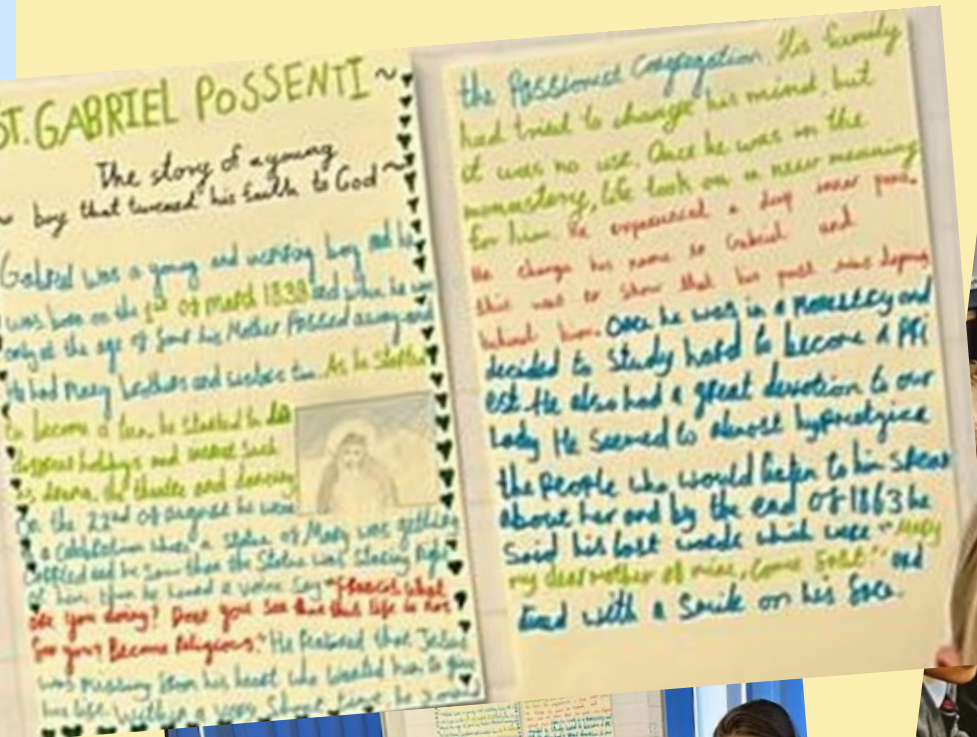 ST. GABRIEL POSSENTI ~
The story of a young
~ boy that turned his faith to God ~
Gabriel was a young and working boy and he
was born on the 1st of march 1838 and when he was
only at the age of four his Mother Passed away and
He had Many brothers and sisters too. As he started
to become a teen, he started to
hobbys and such
as drama, the theatre and dancing
On the 22nd of august he went
to a celebration where a statue of Mary was getting
and he saw that the Statue was staring Right
at him then he heard a voice say "Francis what
are you doing? Dont you see that this life is not
for you? Become Religious." He Realised that Jesus
was missing from his heart who wanted him to give
his life. Within a very Short time, he joined
the Passionist Congregation. His family
had tried to change his mind, but
it was no use. Once he was in the
monastery, life took on a new meaning
for him. He experienced a deep inner peace.
He change his name to Gabriel and
this was to show that his past was
behind him. Once he was in a Monastery and
decided to Study hard to become a PRi
est. He also had a great devotion to our
Lady He Seemed to almost hypnotyice
the People who would listen to him speak
about her and by the end of 1863 he
Said his last words which were "Mary
my dear mother of mine, come fast" and
died with a Smile on his face.